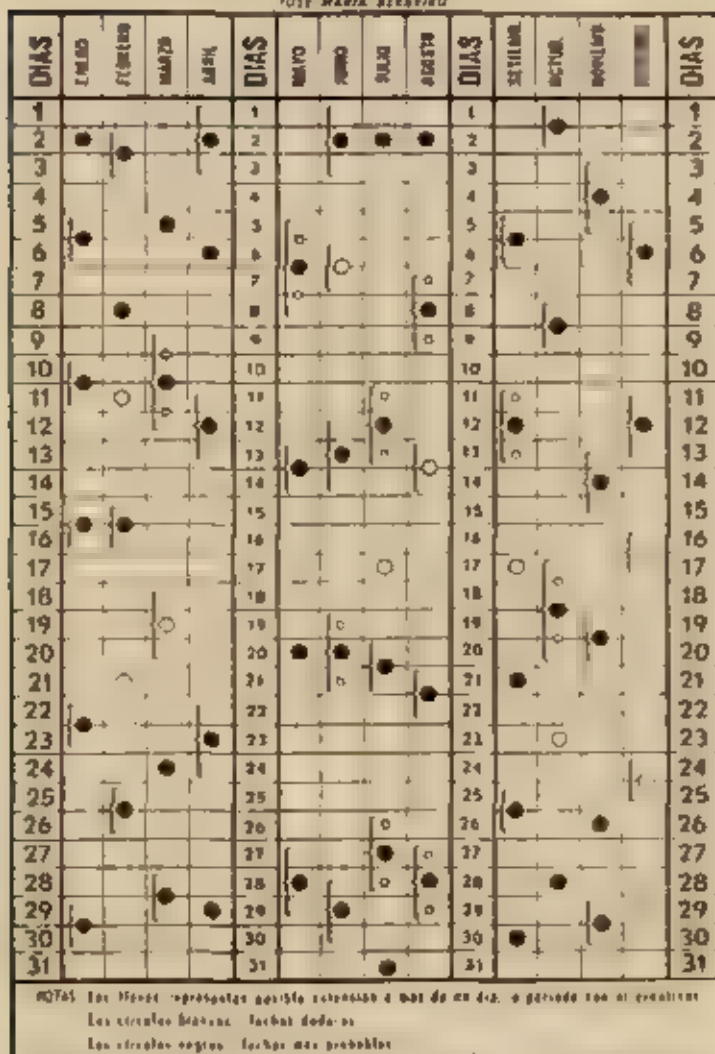 JOSE MARIA
DIAS ENERO FEBRERO MARZO ABRIL DIAS MAYO JUNIO JULIO AGOSTO DIAS SETIEM. OCTUB. DIAS
1 1 1 1
2 2 2 2
3 3 3 3
4 4 4 4
5 5 5 5
6 6 6 6
7 7 7 7
8 8 8 8
9 9 9 9
10 10 10 10
11 11 11 11
12 12 12 12
13 13 13 13
14 14 14 14
15 15 15 15
16 16 16 16
17 17 17 17
18 18 18 18
19 19 19 19
20 20 20 20
21 21 21 21
22 22 22 22
23 23 23 23
24 24 24 24
25 25 25 25
26 26 26 26
27 27 27 27
28 28 28 28
29 29 29 29
30 30 30 30
31 31 31 31
NOTAS Las llaves representan posible extension a mas de un dia, o periodo con el
Los circulos blancos fechas dudosas
Los circulos negros fechas mas probables